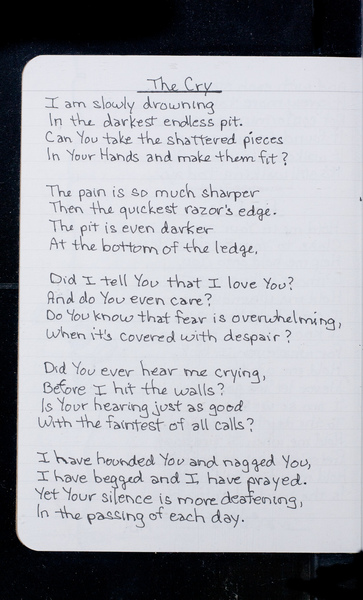 The Cry
I am slowly drowning
In the darkest endless pit.
Can You take the shattered pieces
In Your Hands and make them fit?
The pain is so much sharper
Then the quickest razor's edge.
The pit is even darker
At the bottom of the ledge.
Did I tell You that I love You?
And do You even care?
Do You know that fear is overwhelming,
When it's covered with despair?
Did You ever hear me crying,
Before I hit the walls?
Is Your hearing just as good
With the faintest of all calls?
I have hounded You and nagged You,
I have begged and I have prayed.
Yet Your silence is more deafening,
In the passing of each day.